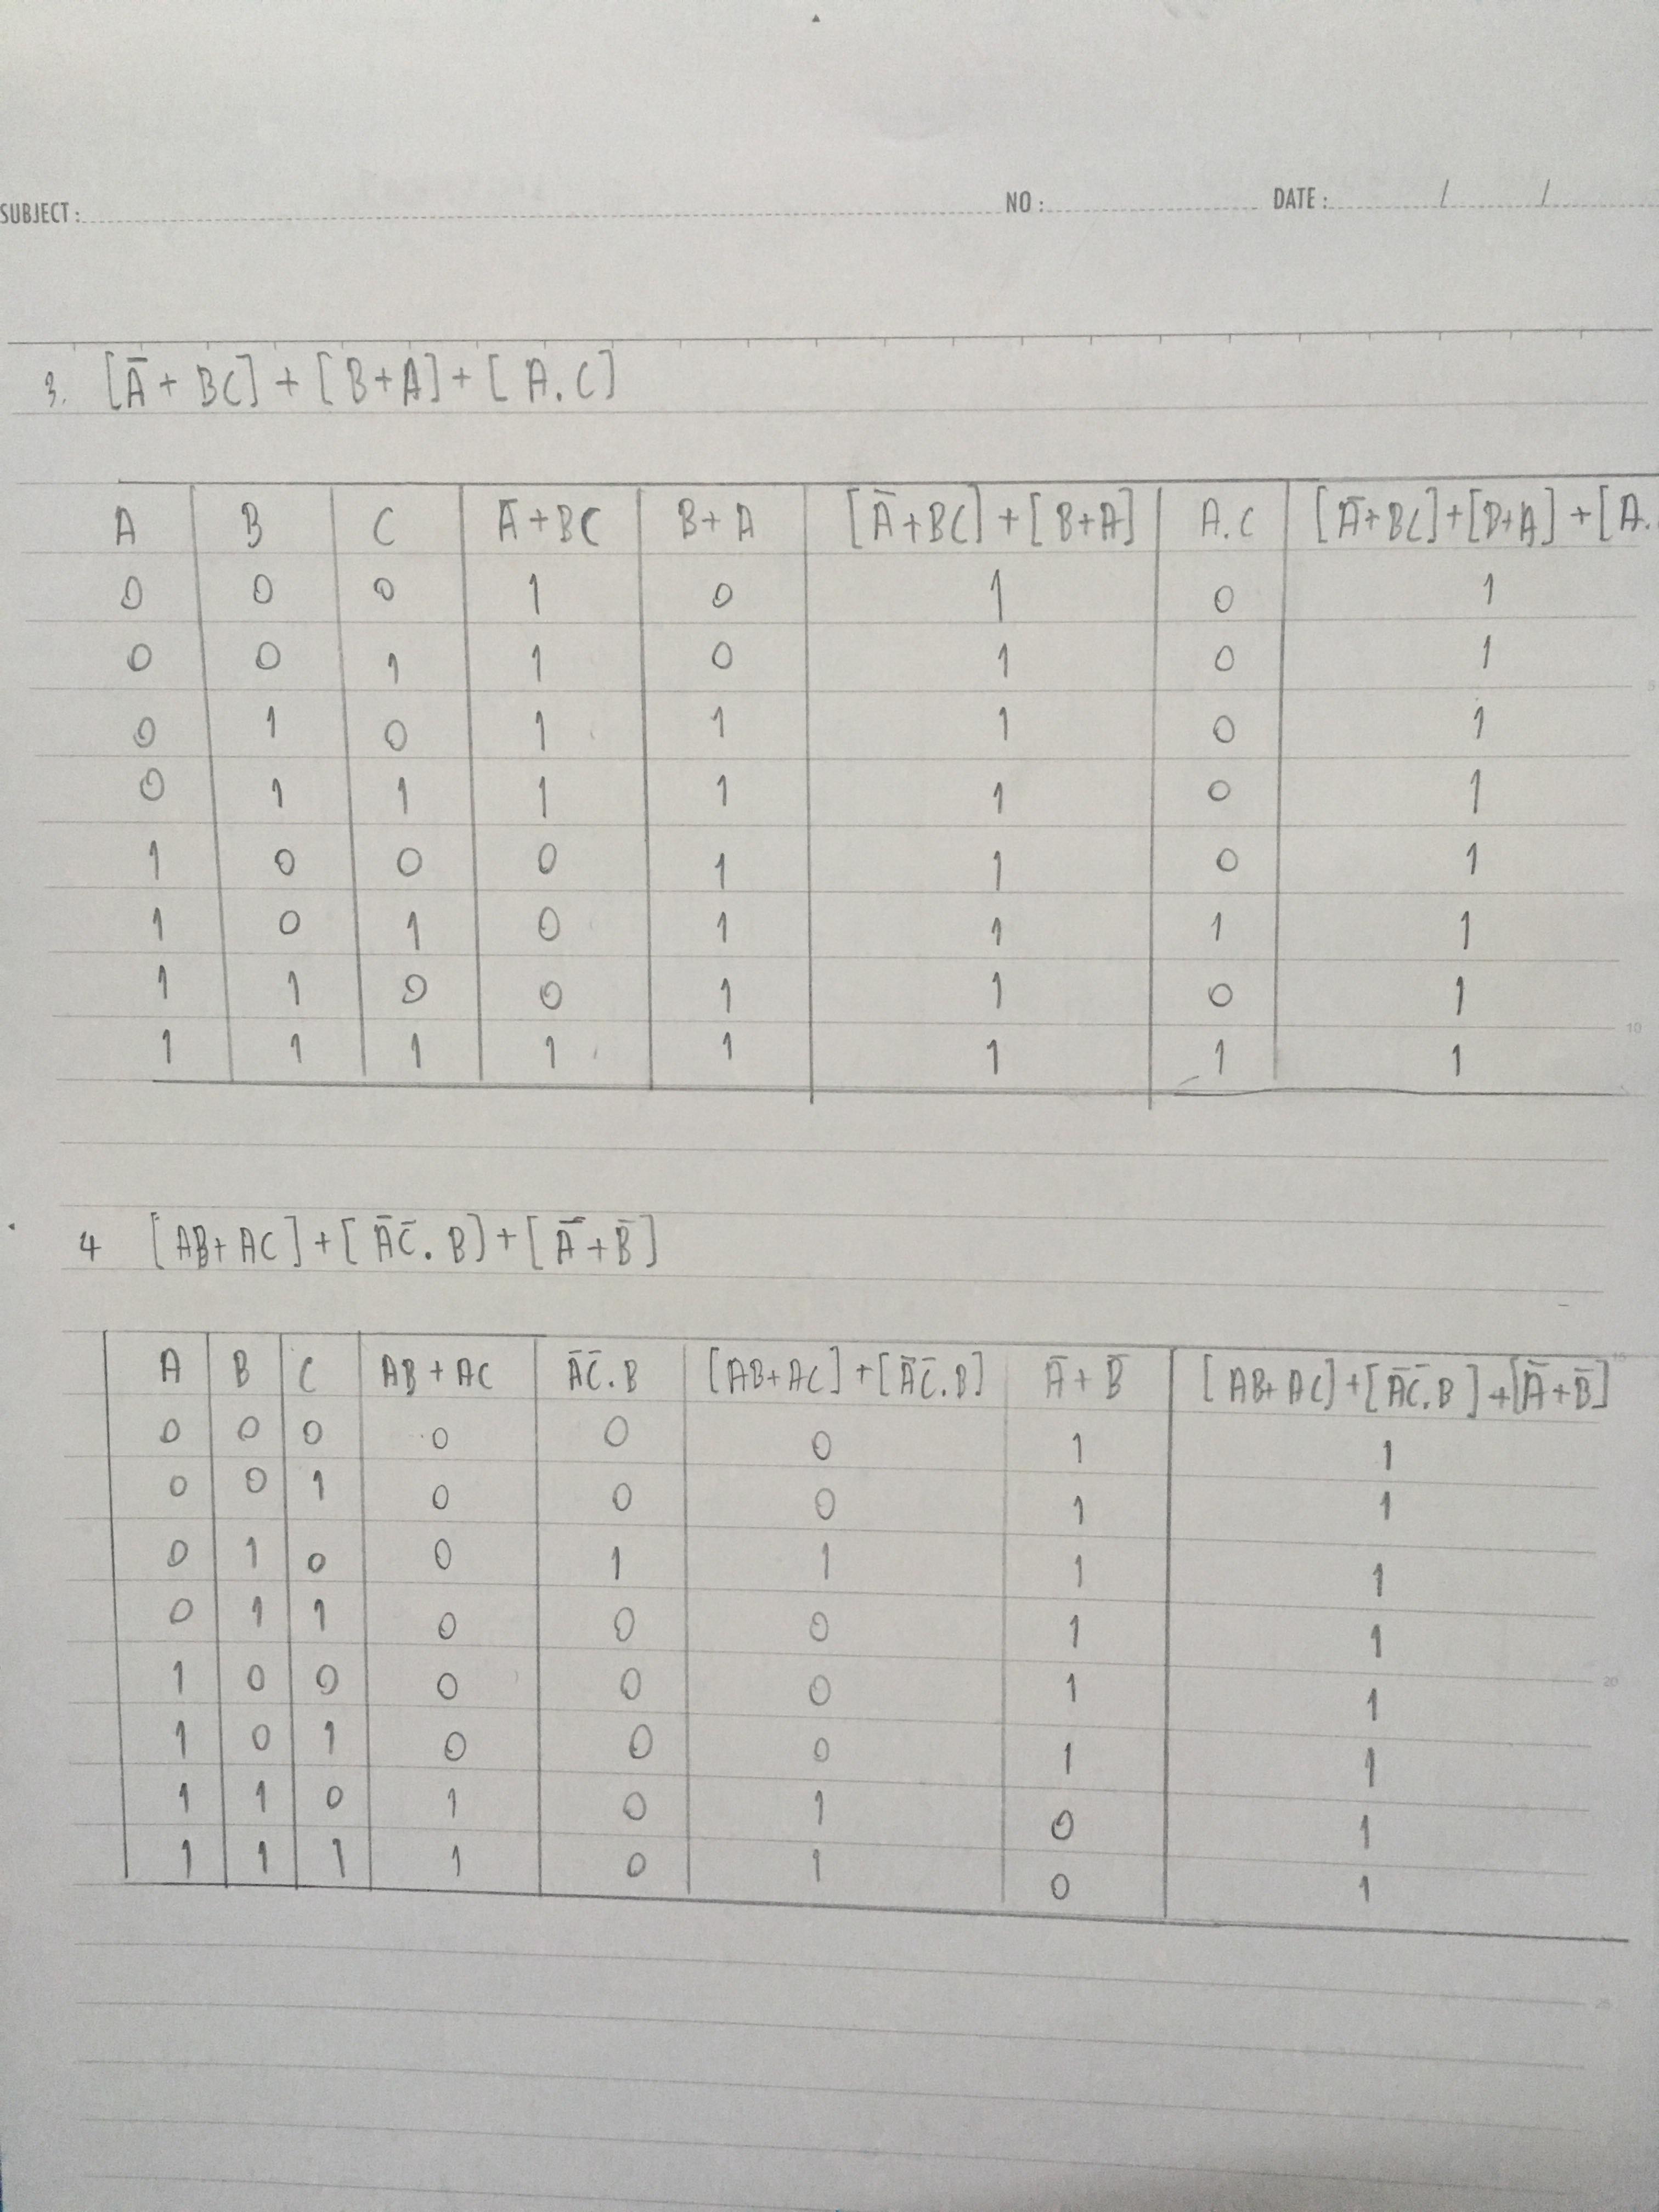 SUBJECT : NO : DATE : / /
3. [Ā + BC] + [B+A] + [A.C]
A B C Ā+BC B+A [Ā+BC] + [B+A] A.C [Ā+BC]+[B+A]+[A.
0 0 0 1 0 1 0 1
0 0 1 1 0 1 0 1
5
0 1 0 1 1 1 0 1
0 1 1 1 1 1 0 1
1 0 0 0 1 1 0 1
1 0 1 0 1 1 1 1
1 1 0 0 1 1 0 1
10
1 1 1 1 1 1 1 1
4 [AB+AC]+[ĀC̄.B]+[Ā+B̄]
15
A B C AB+AC ĀC̄.B [AB+AC]+[ĀC̄.B] Ā+B̄ [AB+AC]+[ĀC̄.B]+[Ā+B̄]
0 0 0 0 0 0 1 1
0 0 1 0 0 0 1 1
0 1 0 0 1 1 1 1
0 1 1 0 0 0 1 1
20
1 0 0 0 0 0 1 1
1 0 1 0 0 0 1 1
1 1 0 1 0 1 0 1
1 1 1 1 0 1 0 1
25